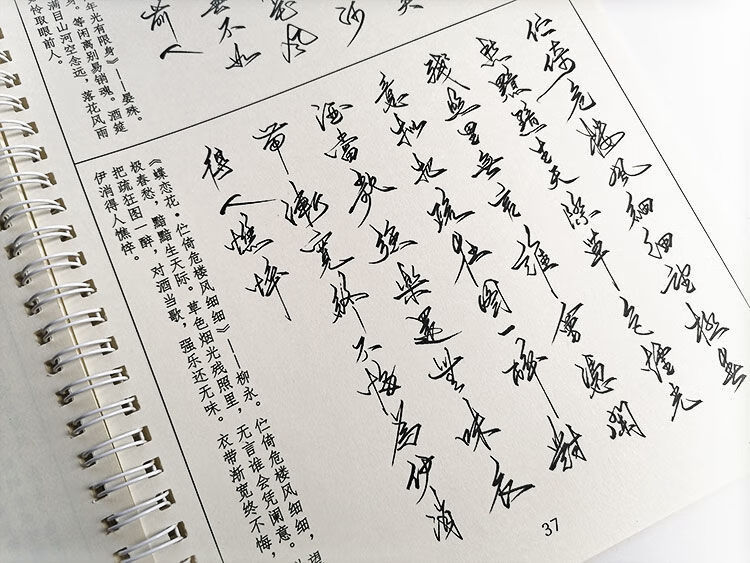 風
不如
前人
年光有限身》——晏殊。
。等闲离别易销魂。酒筵
满目山河空念远,落花风雨
怜取眼前人。
伫倚危樓風細細望極春
愁黯黯生天際草色煙光
殘照里無言誰會憑闌
意拟把疏狂图一醉對
酒當歌強樂還無味衣
帶漸寬終不悔為伊消
得人憔悴
《蝶恋花·伫倚危楼风细细》——柳永。伫倚危楼风细细,望
极春愁,黯黯生天际。草色烟光残照里,无言谁会凭阑意。
把疏狂图一醉,对酒当歌,强乐还无味。衣带渐宽终不悔,
伊消得人憔悴。
37